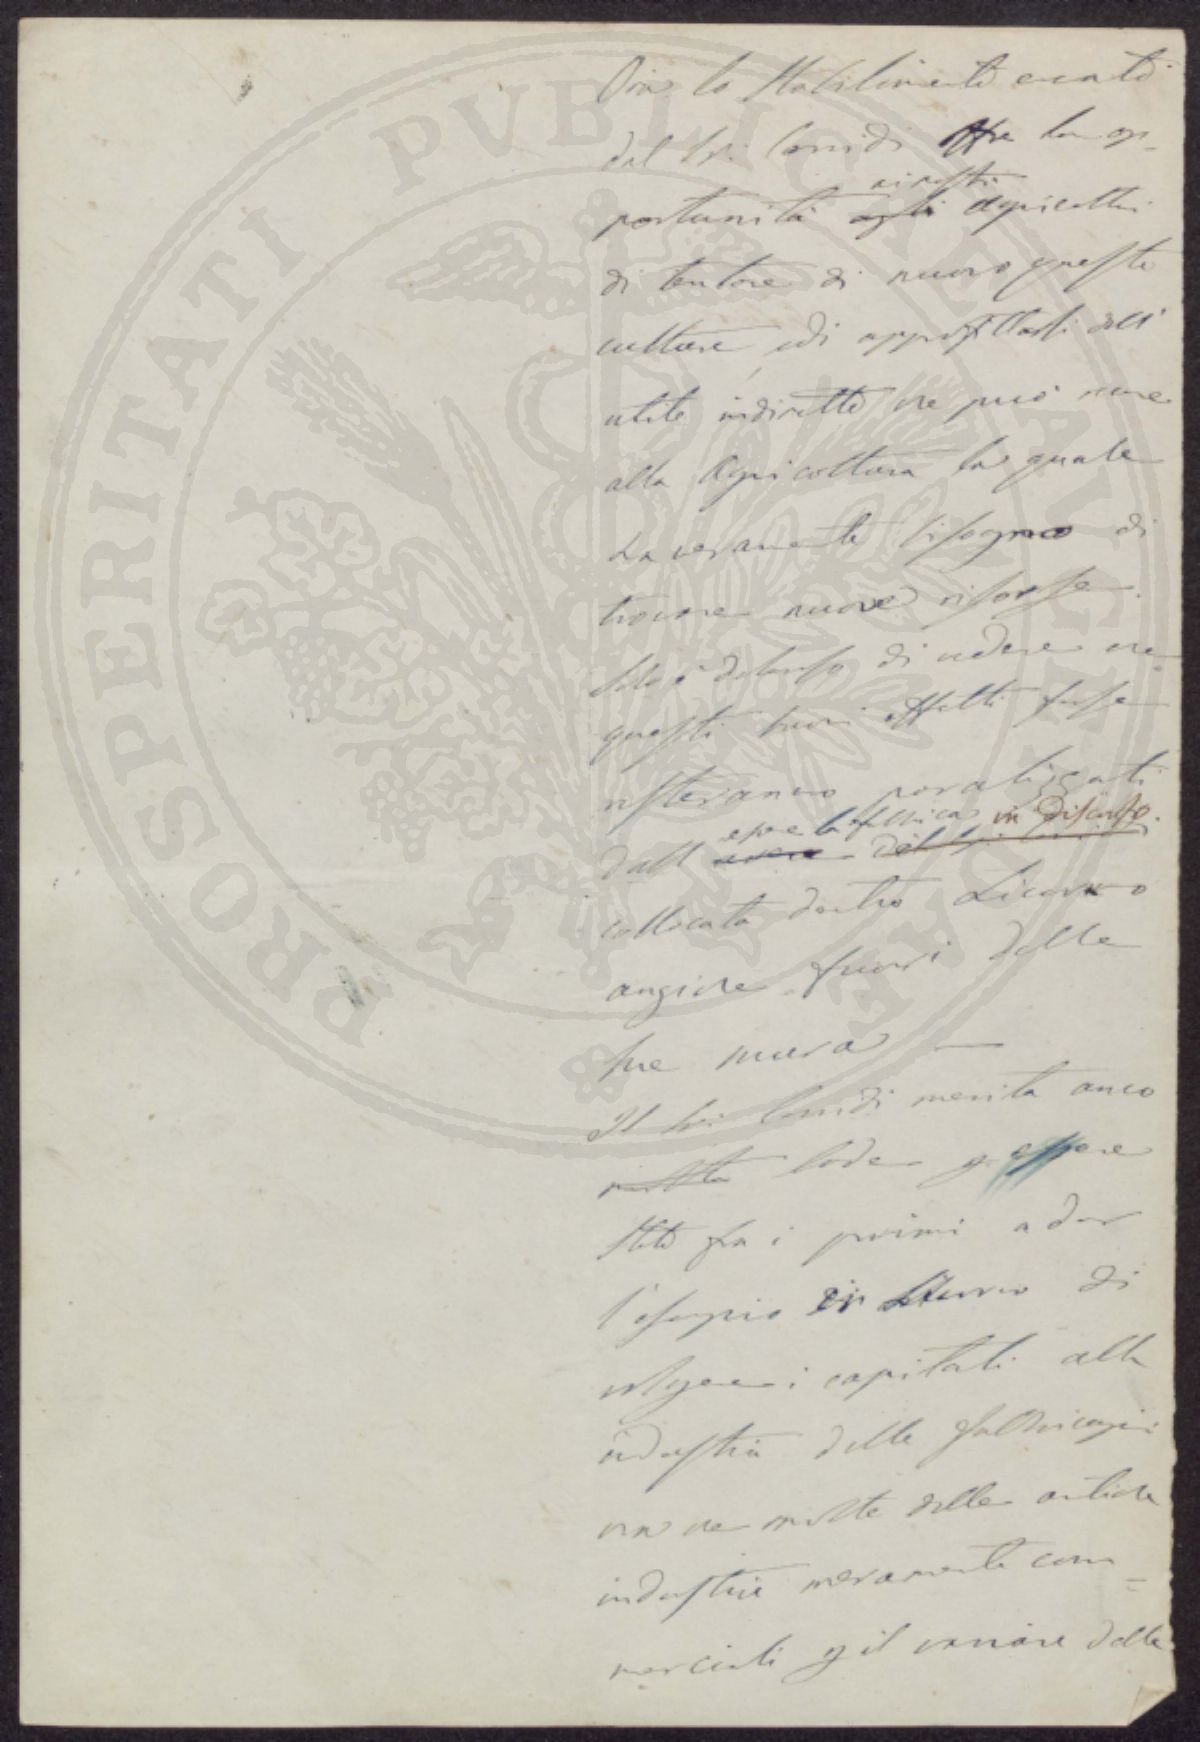 Ora lo Stabilimento creato
dal Sig. Corridi offre la op-
portunità ai nostri agli Agricoltori
di tentare di nuovo queste
culture, e di approfittarsi dell'
utile indiretto che può venire
alla Agricoltura la quale
ha veramente bisogno di
trovare nuove risorse.
Solo è doloroso di vedere che
questi buoni effetti forse
resteranno paralizzati
dall' essere la fabbrica in discorso
collocata dentro Livorno
anziché fuori delle
sue mura —
Il Sig. Corridi merita anco
molta lode p. essere
stato fra i primi a dar
l'esempio in Livorno di
volgere i capitali alla
industria delle fabbricazioni
ora che molte delle antiche
industrie meramente com-
merciali p. il variare delle
PROSPERITATI PVBLICAE AVGENDAE